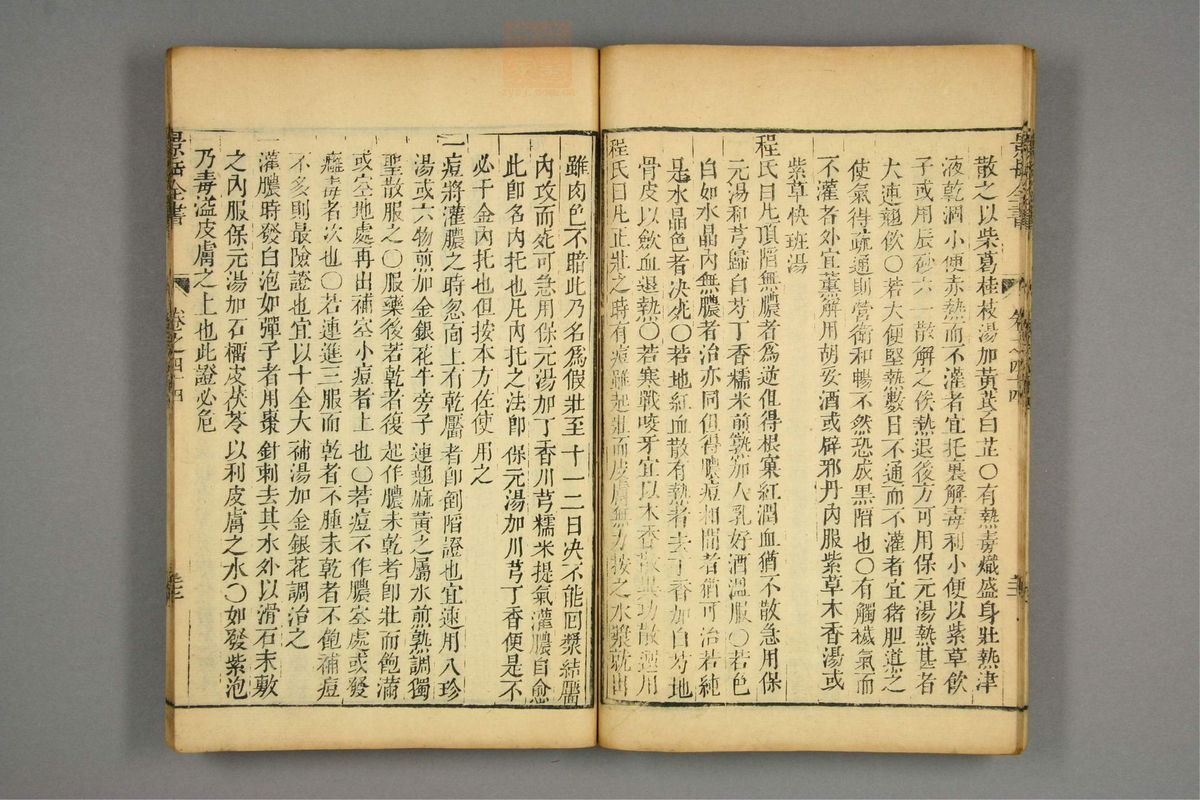 景岳全書 卷之四十四
散之以柴葛桂枝湯加黃芪白芷○有熱毒熾盛身壯熱津
液乾涸小便赤熱而不灌者宜托裏解毒利小便以紫草飲
子或用辰砂六一散解之俟熱退後方可用保元湯熱甚者
大連翹飲○若大便堅熱數日不通而不灌者宜猪胆導之
使氣得疏通則營衛和暢不然恐成黑陷也○有觸穢氣而
不灌者外宜薰解用胡荽酒或辟邪丹內服紫草木香湯或
紫草快班湯
程氏曰凡頂陷無膿者爲逆但得根窠紅潤血猶不散急用保
元湯和芎歸白芍丁香糯米煎熟加人乳好酒溫服○若色
白如水晶內無膿者治亦同但得膿痘相間者猶可治若純
是水晶色者決死○若地紅血散有熱者去丁香加白芍地
骨皮以斂血退熱○若寒戰咬牙宜以木香異功散選用
程氏曰凡正壯之時有痘雖起壯而皮膚無力按之水漿就出
雖肉色不暗此乃名爲假壯至十一二日决不能回漿結靨
內攻而死可急用保元湯加丁香川芎糯米提氣灌膿自愈
此卽名內托也凡內托之法卽保元湯加川芎丁香便是不
必千金內托也但按本方佐使用之
一痘將灌膿之時忽面上有乾靨者卽倒陷證也宜速用八珍
湯或六物煎加金銀花牛旁子連翹麻黃之屬水煎熟調獨
聖散服之○服藥後若乾者復起作膿未乾者卽壯而飽滿
或空地處再出補空小痘者上也○若痘不作膿空處或發
癰毒者次也○若連進三服而乾者不腫未乾者不飽補痘
不多則最險證也宜以十全大補湯加金銀花調治之
一灌膿時發白泡如彈子者用棗針刺去其水外以滑石末敷
之內服保元湯加石橊皮茯苓以利皮膚之水○如發紫泡
乃毒溢皮膚之上也此證必危
景岳全書 卷之四十四